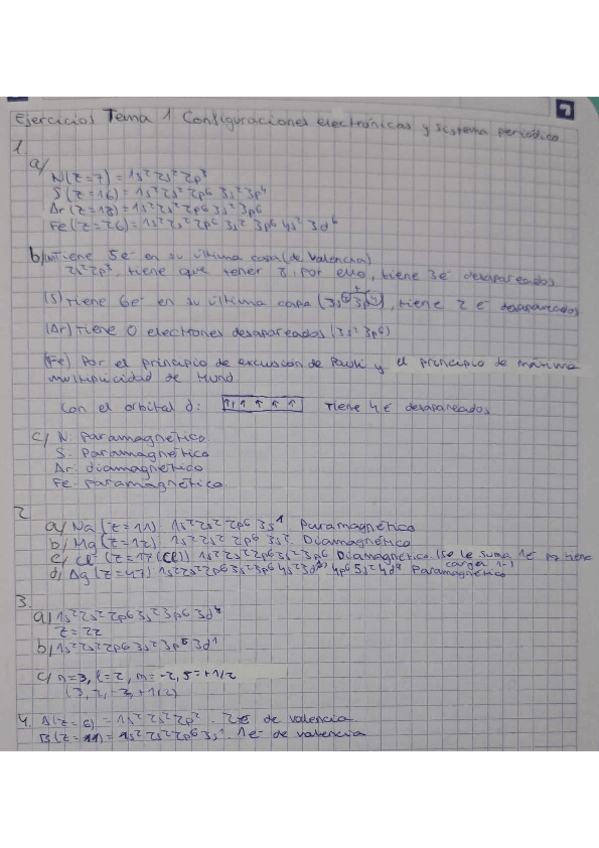 Ejercicios Tema 1 Configuraciones electrónicas y sistema periódico
1.
a/
N (z=7) = 1s² 2s² 2p³
S (z=16) = 1s² 2s² 2p⁶ 3s² 3p⁴
Ar (z=18) = 1s² 2s² 2p⁶ 3s² 3p⁶
Fe (z=26) = 1s² 2s² 2p⁶ 3s² 3p⁶ 4s² 3d⁶
b/ (N) Tiene 5e⁻ en su última capa (de valencia)
2s² 2p³, tiene que tener 8, por ello, tiene 3e⁻ desapareados
(S) tiene 6e⁻ en su última capa (3s² 3p⁴), tiene 2 e⁻ desapareados
(Ar) tiene 0 electrones desapareados (3s² 3p⁶)
(Fe) Por el principio de exclusión de Pauli y el principio de máxima
multiplicidad de Hund.
Con el orbital d: ↑↓ ↑ ↑ ↑ ↑ tiene 4e⁻ desapareados
c/ N: Paramagnético
S: Paramagnético
Ar: diamagnético
Fe: paramagnético.
2.
a/ Na (z=11) 1s² 2s² 2p⁶ 3s¹ Paramagnético
b/ Mg (z=12) 1s² 2s² 2p⁶ 3s² Diamagnético
c/ Cl⁻ (z=17 (Cl)) 1s² 2s² 2p⁶ 3s² 3p⁶ Diamagnético (se le suma 1e⁻
carga -1)
d/ Ag (z=47) 1s² 2s² 2p⁶ 3s² 3p⁶ 4s² 3d¹⁰ 4p⁶ 5s² 4d⁹ Paramagnético
3.
a/ 1s² 2s² 2p⁶ 3s² 3p⁶ 3d⁴
z=22
b/ 1s² 2s² 2p⁶ 3s² 3p⁶ 3d¹
c/ n=3, l=2, m=-2, s=+1/2
4. A (z=6) = 1s² 2s² 2p². 2e⁻ de valencia.
B (z=11) = 1s² 2s² 2p⁶ 3s¹. 1e⁻ de valencia